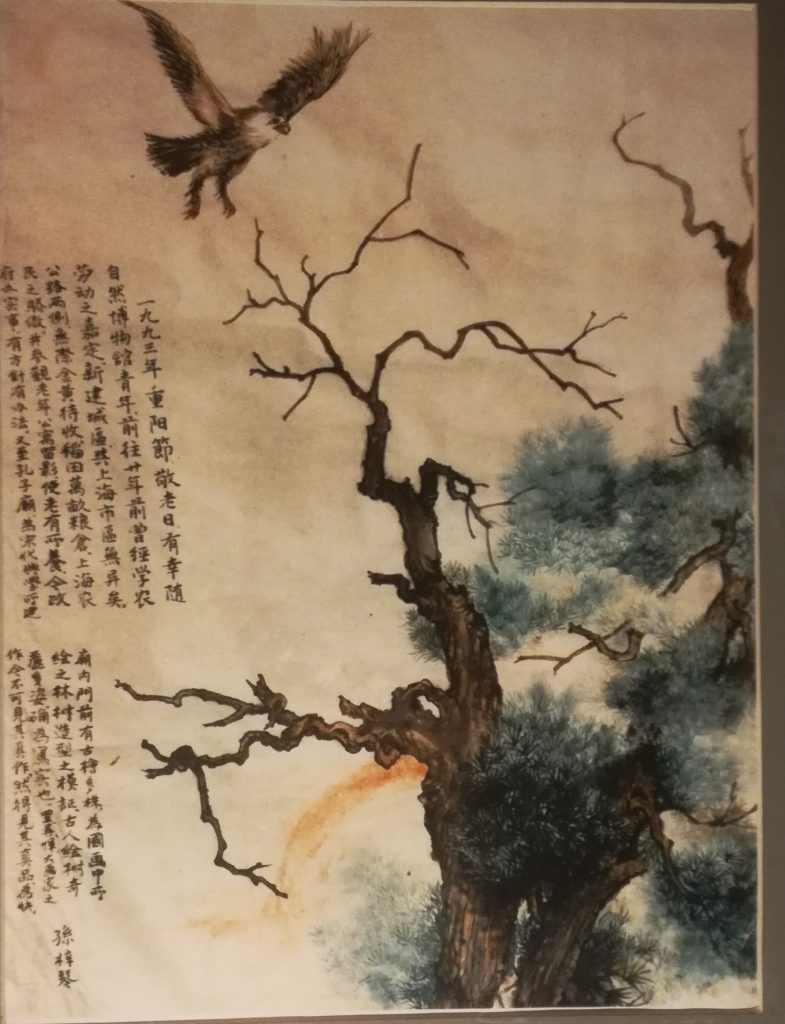 一九九三年重阳節敬老日有幸随
自然博物館青年前往廿年前曾經学农
劳动之嘉定新建城區與上海市區無异矣.
公路两侧無際金黄待收稻田萬畝粮倉上海农
民之驕傲并参觀老年公寓留影便老有所養令政
府办实事有方針有办法又至孔子廟為宋代興學所建
廟内門前有古檜多株為國画中所
绘之林树造型之模証古人绘树奇
多姿确為寫实也大画家之
作今不可見其真作然得見其真品為快
孫梓琴